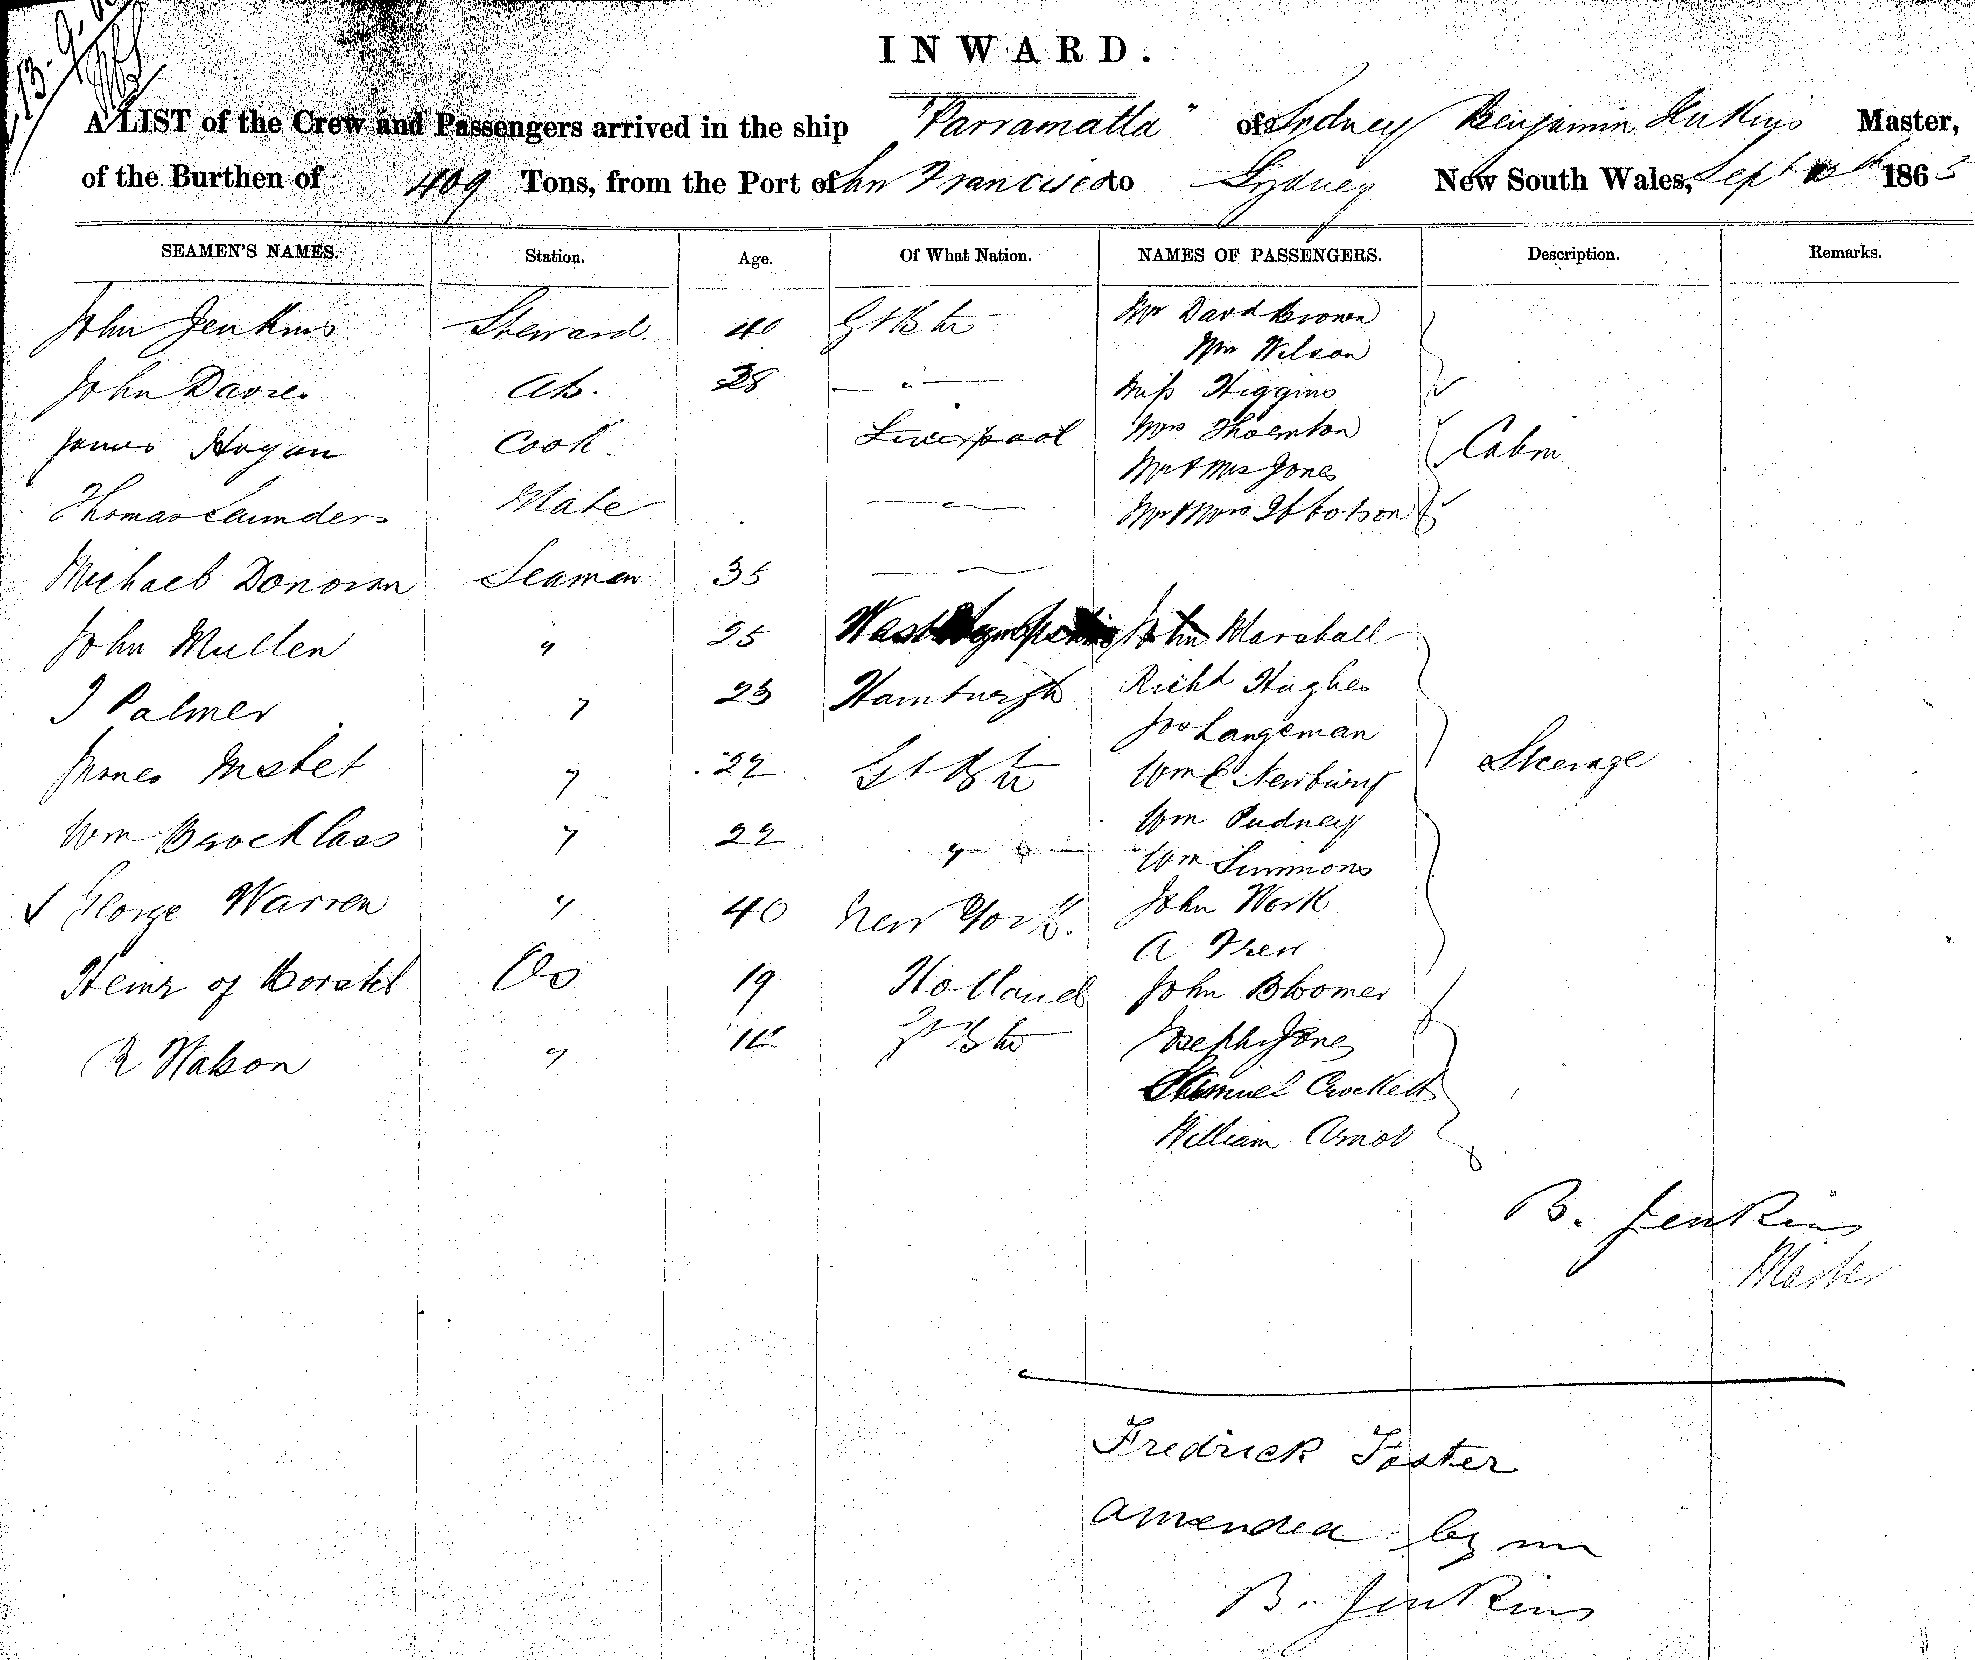 13. 9.
INWARD.
A LIST of the Crew and Passengers arrived in the ship "Parramatta" of Sydney Benjamin Jenkins Master,
of the Burthen of 409 Tons, from the Port of Francisco to Sydney New South Wales, Sept 1865
SEAMEN'S NAMES. Station. Age. Of What Nation. NAMES OF PASSENGERS. Description. Remarks.
John Jenkins Steward 40 Gt Btn Mr David Brown
Wm Wilson
John Davies Ab. 28 — " — Miss Higgins
James Hogan Cook Liverpool Mrs Thornton Cabin
Mr & Mrs Jones
Thomas Saunders Mate — " — Mr & Mrs Ibbotson
Michael Donovan Seaman 35 — " —
John Mullen " 25 John Marshall
J Palmer " 23 Hamburgh Richd Hughes
Jos Langeman
James " 22 Gt Btn Wm C Newbury Steerage
Wm Pudney
Wm Brocklass " 22 " Wm Simmons
George Warren " 40 New York. John Work
A Trew
Heinr of Borstel Os 19 Holland John Bloomer
R Watson " Gt Btn Joseph Jones
Samuel Crockett
William
B. Jenkins
Master
Fredrick Foster
amended by me
B. Jenkins